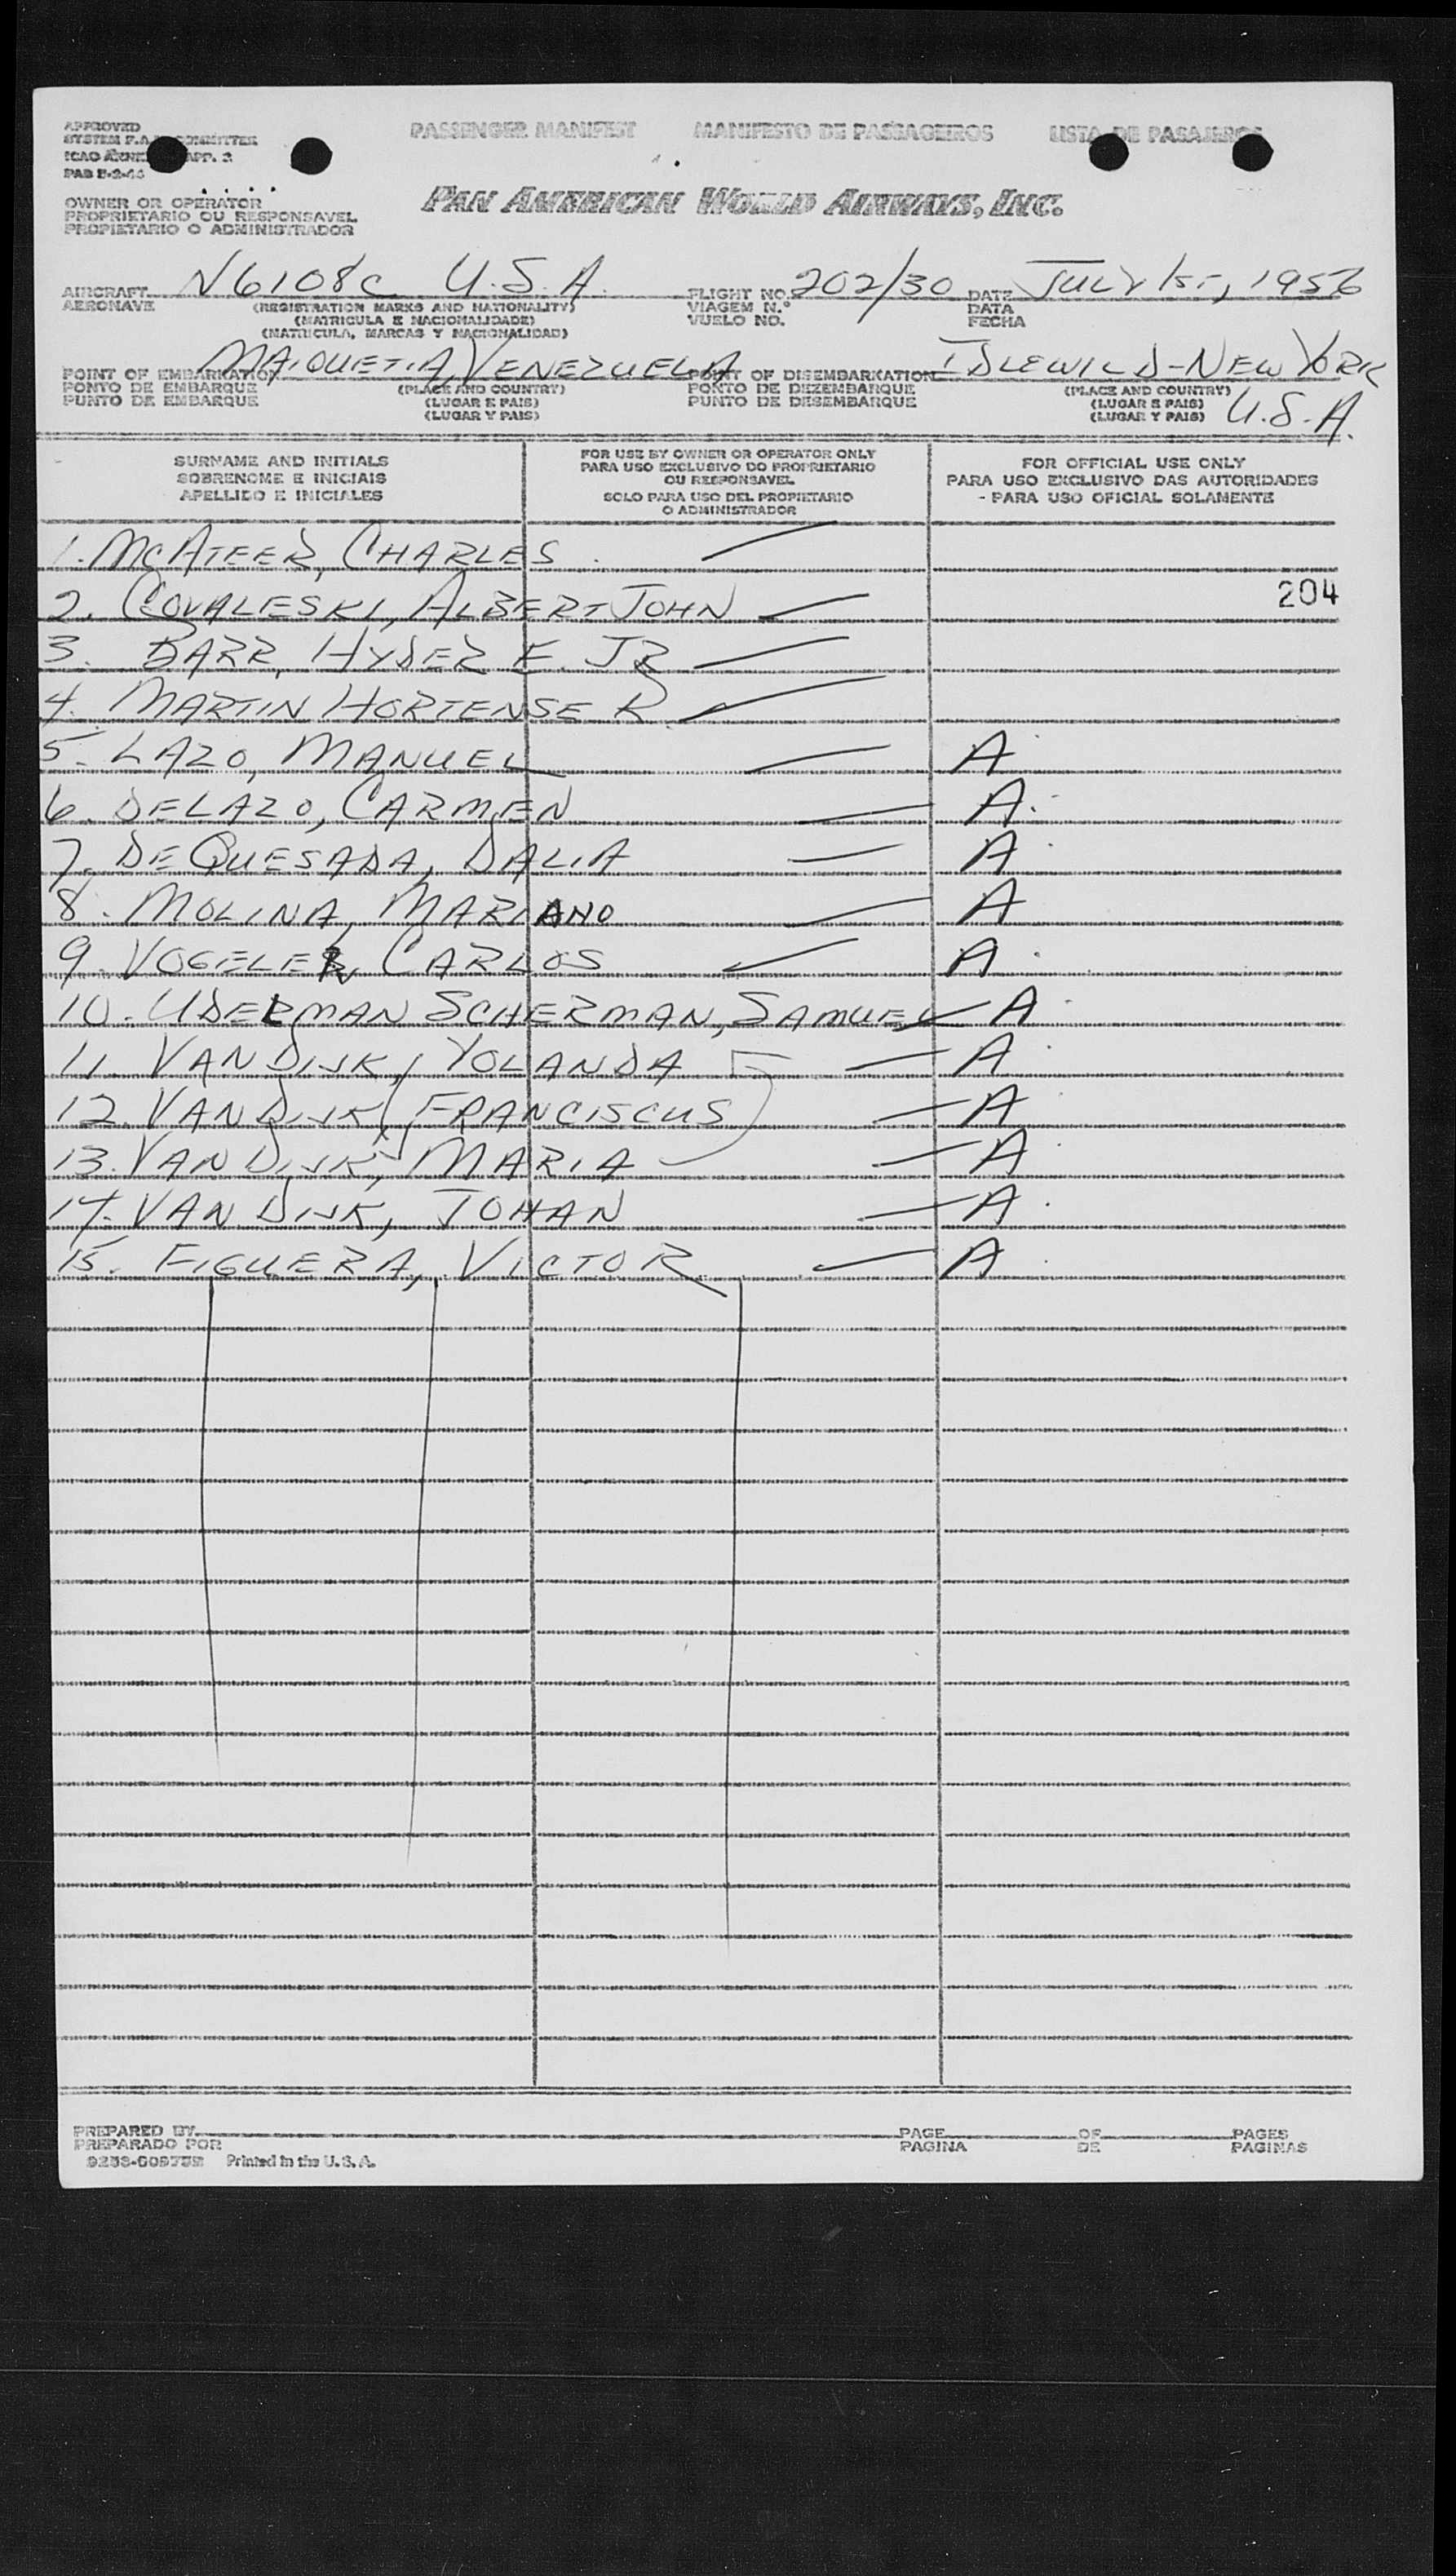 PASSENGER MANIFEST MANIFESTO DE PASSAGEIROS LISTA DE PASAJEROS
APPROVED
SYSTEM F.A. COMMITTEE
ICAO APP. 2
PAB
OWNER OR OPERATOR
PROPRIETARIO OU RESPONSAVEL
PROPIETARIO O ADMINISTRADOR
PAN AMERICAN WORLD AIRWAYS, INC.
AIRCRAFT N6108C U.S.A. FLIGHT NO. 202/30 DATE JULY 1ST, 1956
AERONAVE (REGISTRATION MARKS AND NATIONALITY) VIAGEM N.º DATA
(MATRICULA E NACIONALIDADE) VUELO NO. FECHA
(MATRICULA, MARCAS Y NACIONALIDAD)
POINT OF EMBARKATION MAIQUETIA, VENEZUELA POINT OF DISEMBARKATION IDLEWILD-NEW YORK
PONTO DE EMBARQUE (PLACE AND COUNTRY) PONTO DE DEZEMBARQUE (PLACE AND COUNTRY)
PUNTO DE EMBARQUE (LUGAR E PAIS) PUNTO DE DESEMBARQUE (LUGAR E PAIS) U.S.A.
(LUGAR Y PAIS) (LUGAR Y PAIS)
SURNAME AND INITIALS
SOBRENOME E INICIAIS
APELLIDO E INICIALES
FOR USE BY OWNER OR OPERATOR ONLY
PARA USO EXCLUSIVO DO PROPRIETARIO
OU RESPONSAVEL
SOLO PARA USO DEL PROPIETARIO
O ADMINISTRADOR
FOR OFFICIAL USE ONLY
PARA USO EXCLUSIVO DAS AUTORIDADES
- PARA USO OFICIAL SOLAMENTE
1. MCATEER, CHARLES
2. COVALESKI, ALBERT JOHN 204
3. BARR, HYDER E. JR
4. MARTIN HORTENSE R
5. LAZO, MANUEL A
6. DELAZO, CARMEN A
7. DE QUESADA, DALIA A
8. MOLINA, MARIANO A
9. VOGELER, CARLOS A
10. UDELMAN SCHERMAN, SAMUEL A
11. VAN DIJK, YOLANDA A
12. VAN DIJK, FRANCISCUS A
13. VAN DIJK, MARIA A
14. VAN DIJK, JOHAN A
15. FIGUERA, VICTOR A
PREPARED BY PAGE OF PAGES
PREPARADO POR PAGINA DE PAGINAS
Printed in the U. S. A.